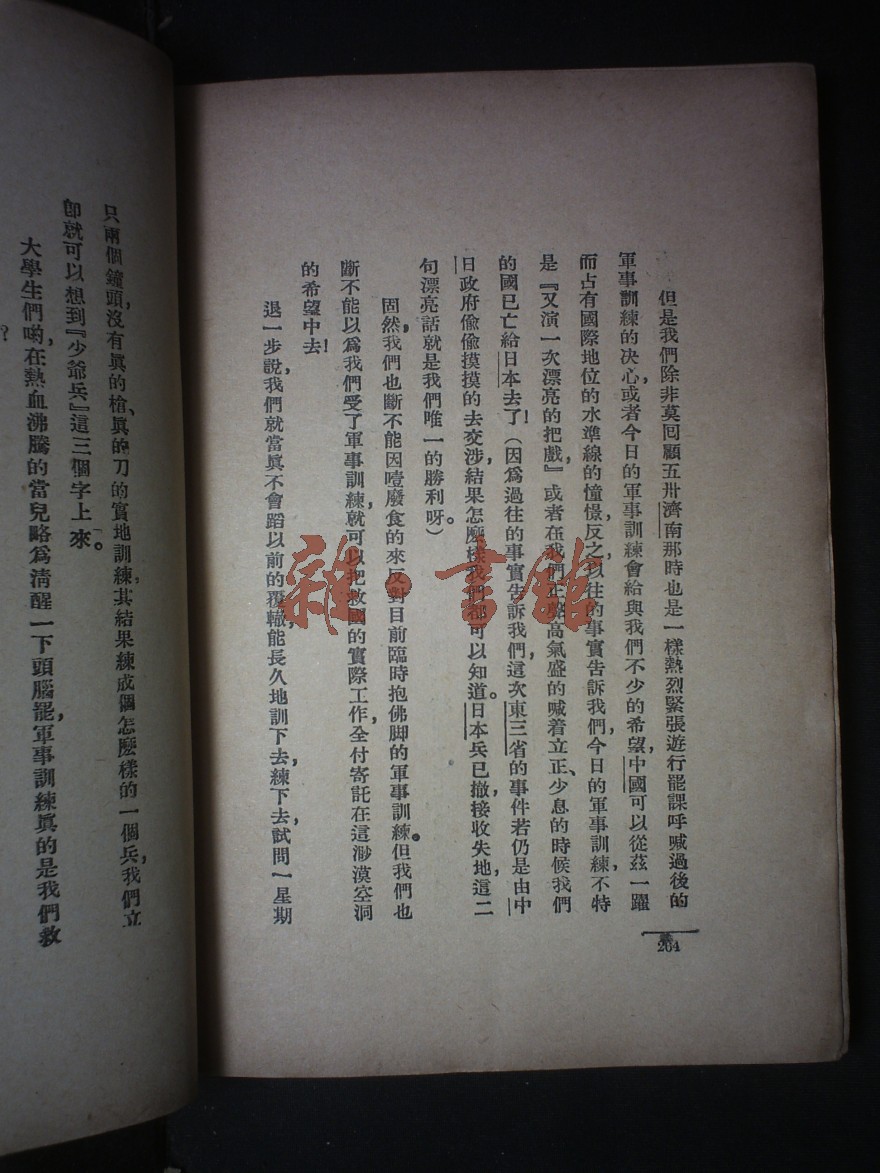 但是我們除非莫回顧五卅濟南那時也是一樣熱烈緊張遊行罷課呼喊過後的
軍事訓練的决心,或者今日的軍事訓練會給與我們不少的希望,中國可以從茲一躍
而占有國際地位的水準線的憧憬,反之以往的事實告訴我們,今日的軍事訓練不特
是『又演一次漂亮的把戲』或者在我們正興高氣盛的喊着立正、少息的時候我們
的國已亡給日本去了!(因爲過往的事實告訴我們,這次東三省的事件若仍是由中
日政府偷偷摸摸的去交涉,結果怎麼樣我們都可以知道。日本兵已撤,接收失地,這二
句漂亮話就是我們唯一的勝利呀。)
固然,我們也斷不能因噎廢食的來反對目前臨時抱佛脚的軍事訓練。但我們也
斷不能以爲我們受了軍事訓練,就可以把救國的實際工作,全付寄託在這渺漠空洞
的希望中去!
退一步說,我們就當眞不會蹈以前的覆轍,能長久地訓下去,練下去,試問一星期
204
只兩個鐘頭,沒有眞的槍、眞的刀的實地訓練,其結果練成個怎麼樣的一個兵,我們立
卽就可以想到『少爺兵』這三個字上來。
大學生們喲,在熱血沸騰的當兒略爲清醒一下頭腦罷,軍事訓練眞的是我們救
?
雜·書館